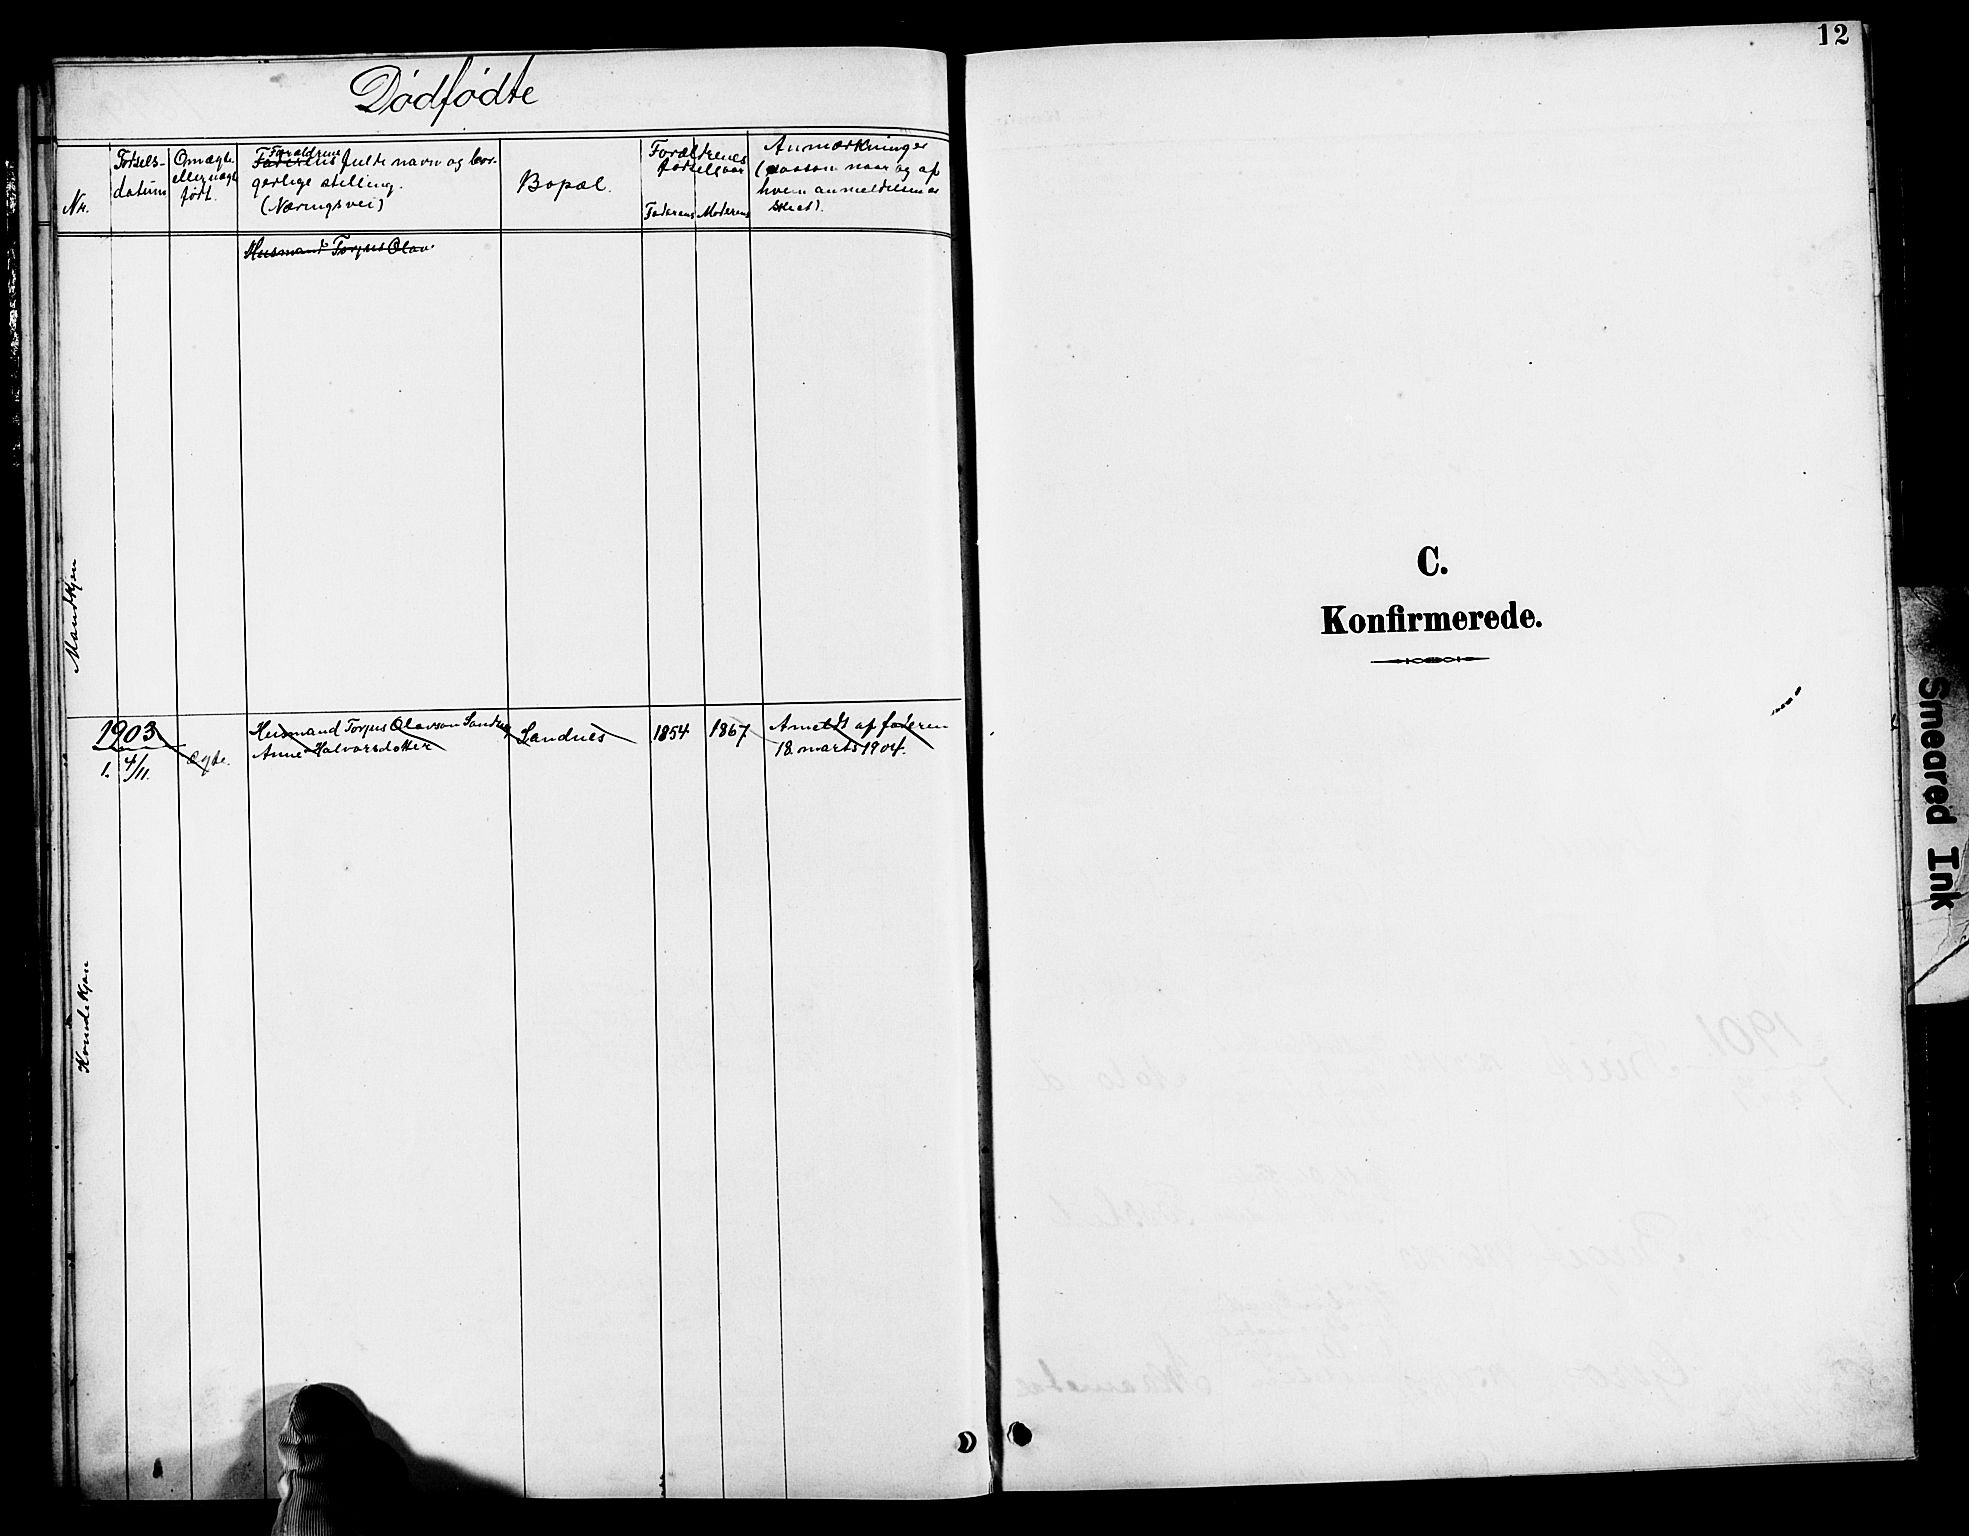 Dødfødte
Nr.
Fødsels-
datum
Om ægte
eller uægte
født.
Forældrene
Faderens fulde navn og bor-
gerlige stilling.
(Næringsvei)
Bopæl.
Forældrenes
fødselsaar
Faderens
Moderens
Anmærkninger
(saasom naar og af
hvem anmeldelsen er
skeet).
Mandkjøn
Husmand Torjus Olav
1903
1. 4/11.
ægte.
Husmand Torjus Olavson Sandnes
Anne Halvorsdotter
Sandnes
1854
1867
Anmeldt af faderen
18 marts 1904.
Kvindekjøn
12
C.
Konfirmerede.
Smeared Ink